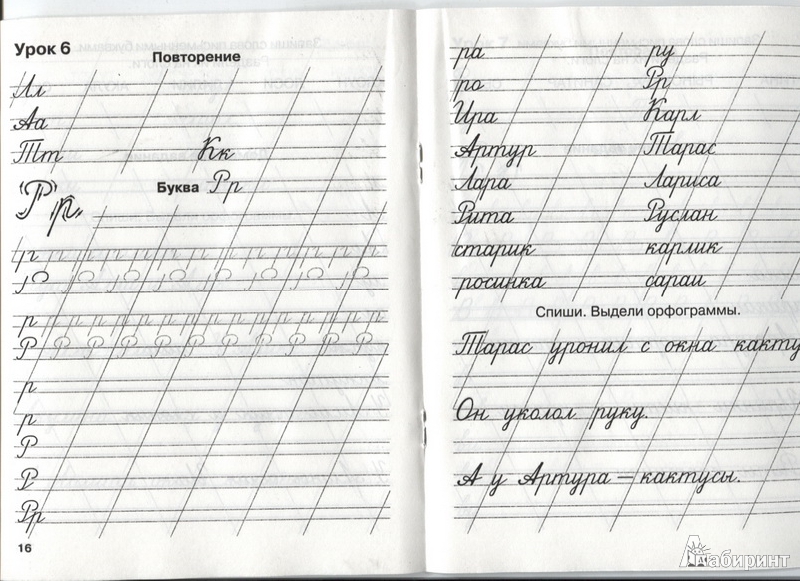 Урок 6
Повторение
Ил
Аа
Тт Кк
Буква Рр
Р р
р
р
Р
р
р
Р
Р
Рр
16
ра ру
ро Рр
Ира Карл
Артур Тарас
Лара Лариса
Рита Руслан
старик карлик
росинка сараи
Спиши. Выдели орфограммы.
Тарас уронил с окна какту
Он уколол руку.
А у Артура — кактусы.
Лабиринт